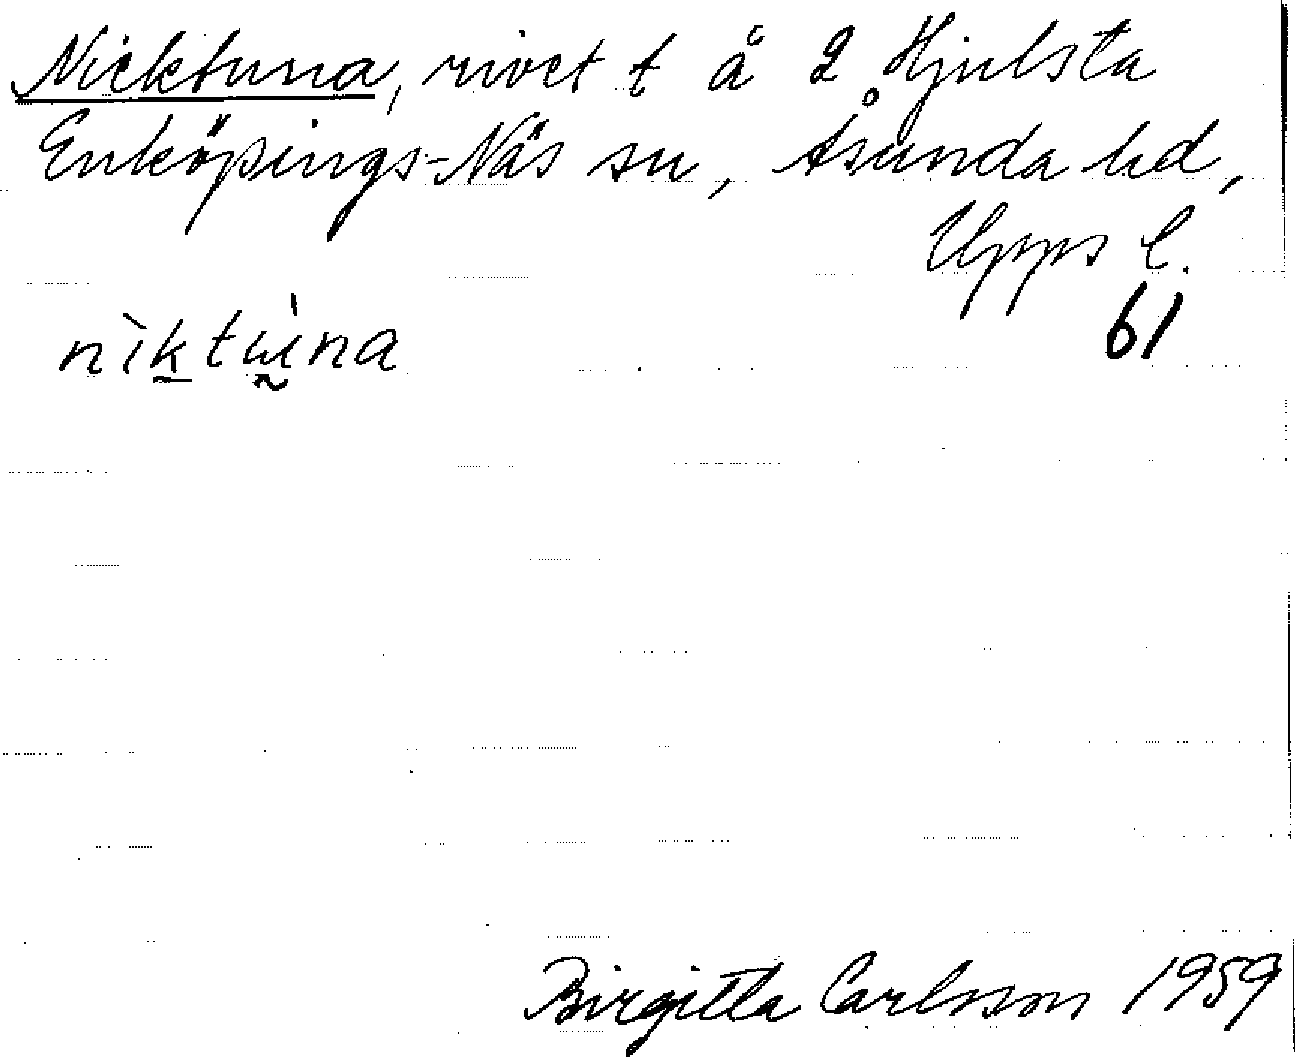 Nicktuna, rivet t å 2 Hjulsta
Enköpings-Näs sn, Åsunda hd,
Upps l.
61
nìktùna
Birgitta Carlsson 1959